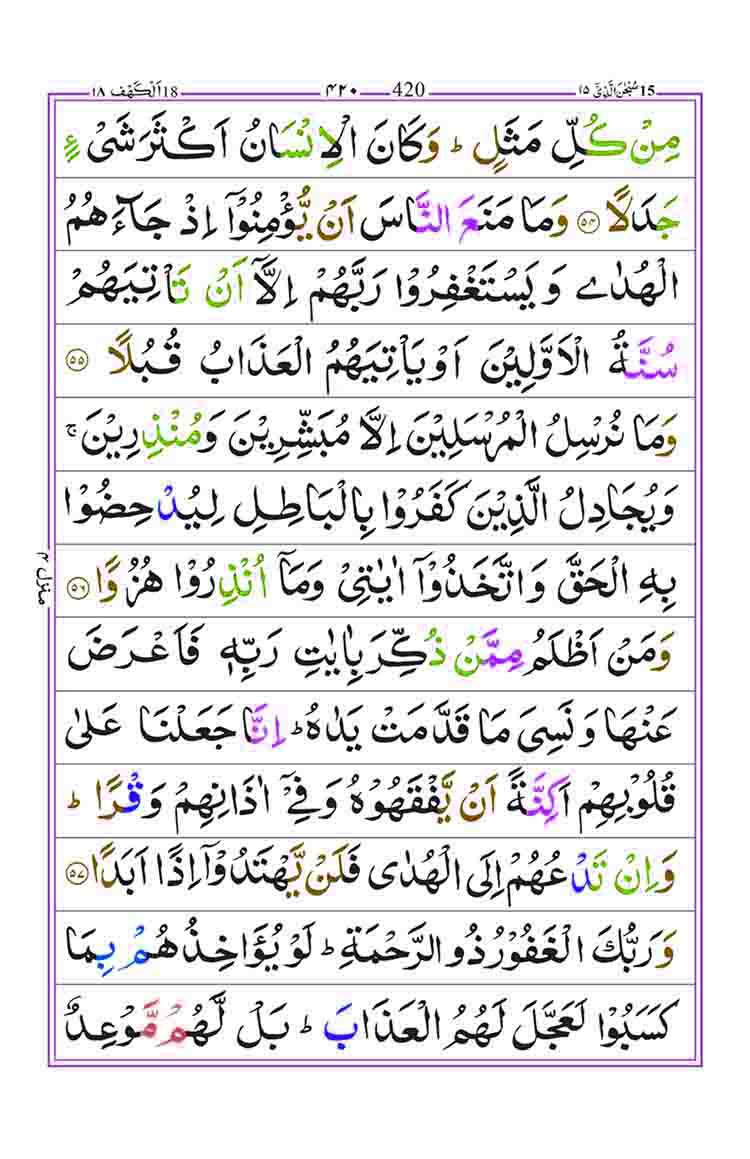 15 سُبْحٰنَ الَّذِیْۤ ۱۵ 420 ۴۲۰ 18 اَلْكَهْف ۱۸
مِنْ كُلِّ مَثَلٍ ؕ وَكَانَ الْاِنْسَانُ اَكْثَرَ شَیْءٍ
جَدَلًا ﴿۵۴﴾ وَمَا مَنَعَ النَّاسَ اَنْ يُّؤْمِنُوْۤا اِذْ جَآءَهُمُ
الْهُدٰى وَيَسْتَغْفِرُوْا رَبَّهُمْ اِلَّاۤ اَنْ تَاْتِيَهُمْ
سُنَّةُ الْاَوَّلِيْنَ اَوْ يَاْتِيَهُمُ الْعَذَابُ قُبُلًا ﴿۵۵﴾
وَمَا نُرْسِلُ الْمُرْسَلِيْنَ اِلَّا مُبَشِّرِيْنَ وَمُنْذِرِيْنَ ۚ
وَيُجَادِلُ الَّذِيْنَ كَفَرُوْا بِالْبَاطِلِ لِيُدْحِضُوْا
بِهِ الْحَقَّ وَاتَّخَذُوْۤا اٰيٰتِیْ وَمَاۤ اُنْذِرُوْا هُزُوًا ﴿۵۶﴾
وَمَنْ اَظْلَمُ مِمَّنْ ذُكِّرَ بِاٰيٰتِ رَبِّهٖ فَاَعْرَضَ
عَنْهَا وَنَسِیَ مَا قَدَّمَتْ يَدٰهُ ؕ اِنَّا جَعَلْنَا عَلٰى
قُلُوْبِهِمْ اَكِنَّةً اَنْ يَّفْقَهُوْهُ وَفِیْۤ اٰذَانِهِمْ وَقْرًا ؕ
وَاِنْ تَدْعُهُمْ اِلَى الْهُدٰى فَلَنْ يَّهْتَدُوْۤا اِذًا اَبَدًا ﴿۵۷﴾
وَرَبُّكَ الْغَفُوْرُ ذُو الرَّحْمَةِ ؕ لَوْ يُؤَاخِذُهُمْ بِمَا
كَسَبُوْا لَعَجَّلَ لَهُمُ الْعَذَابَ ؕ بَلْ لَّهُمْ مَّوْعِدٌ
منزل ۴